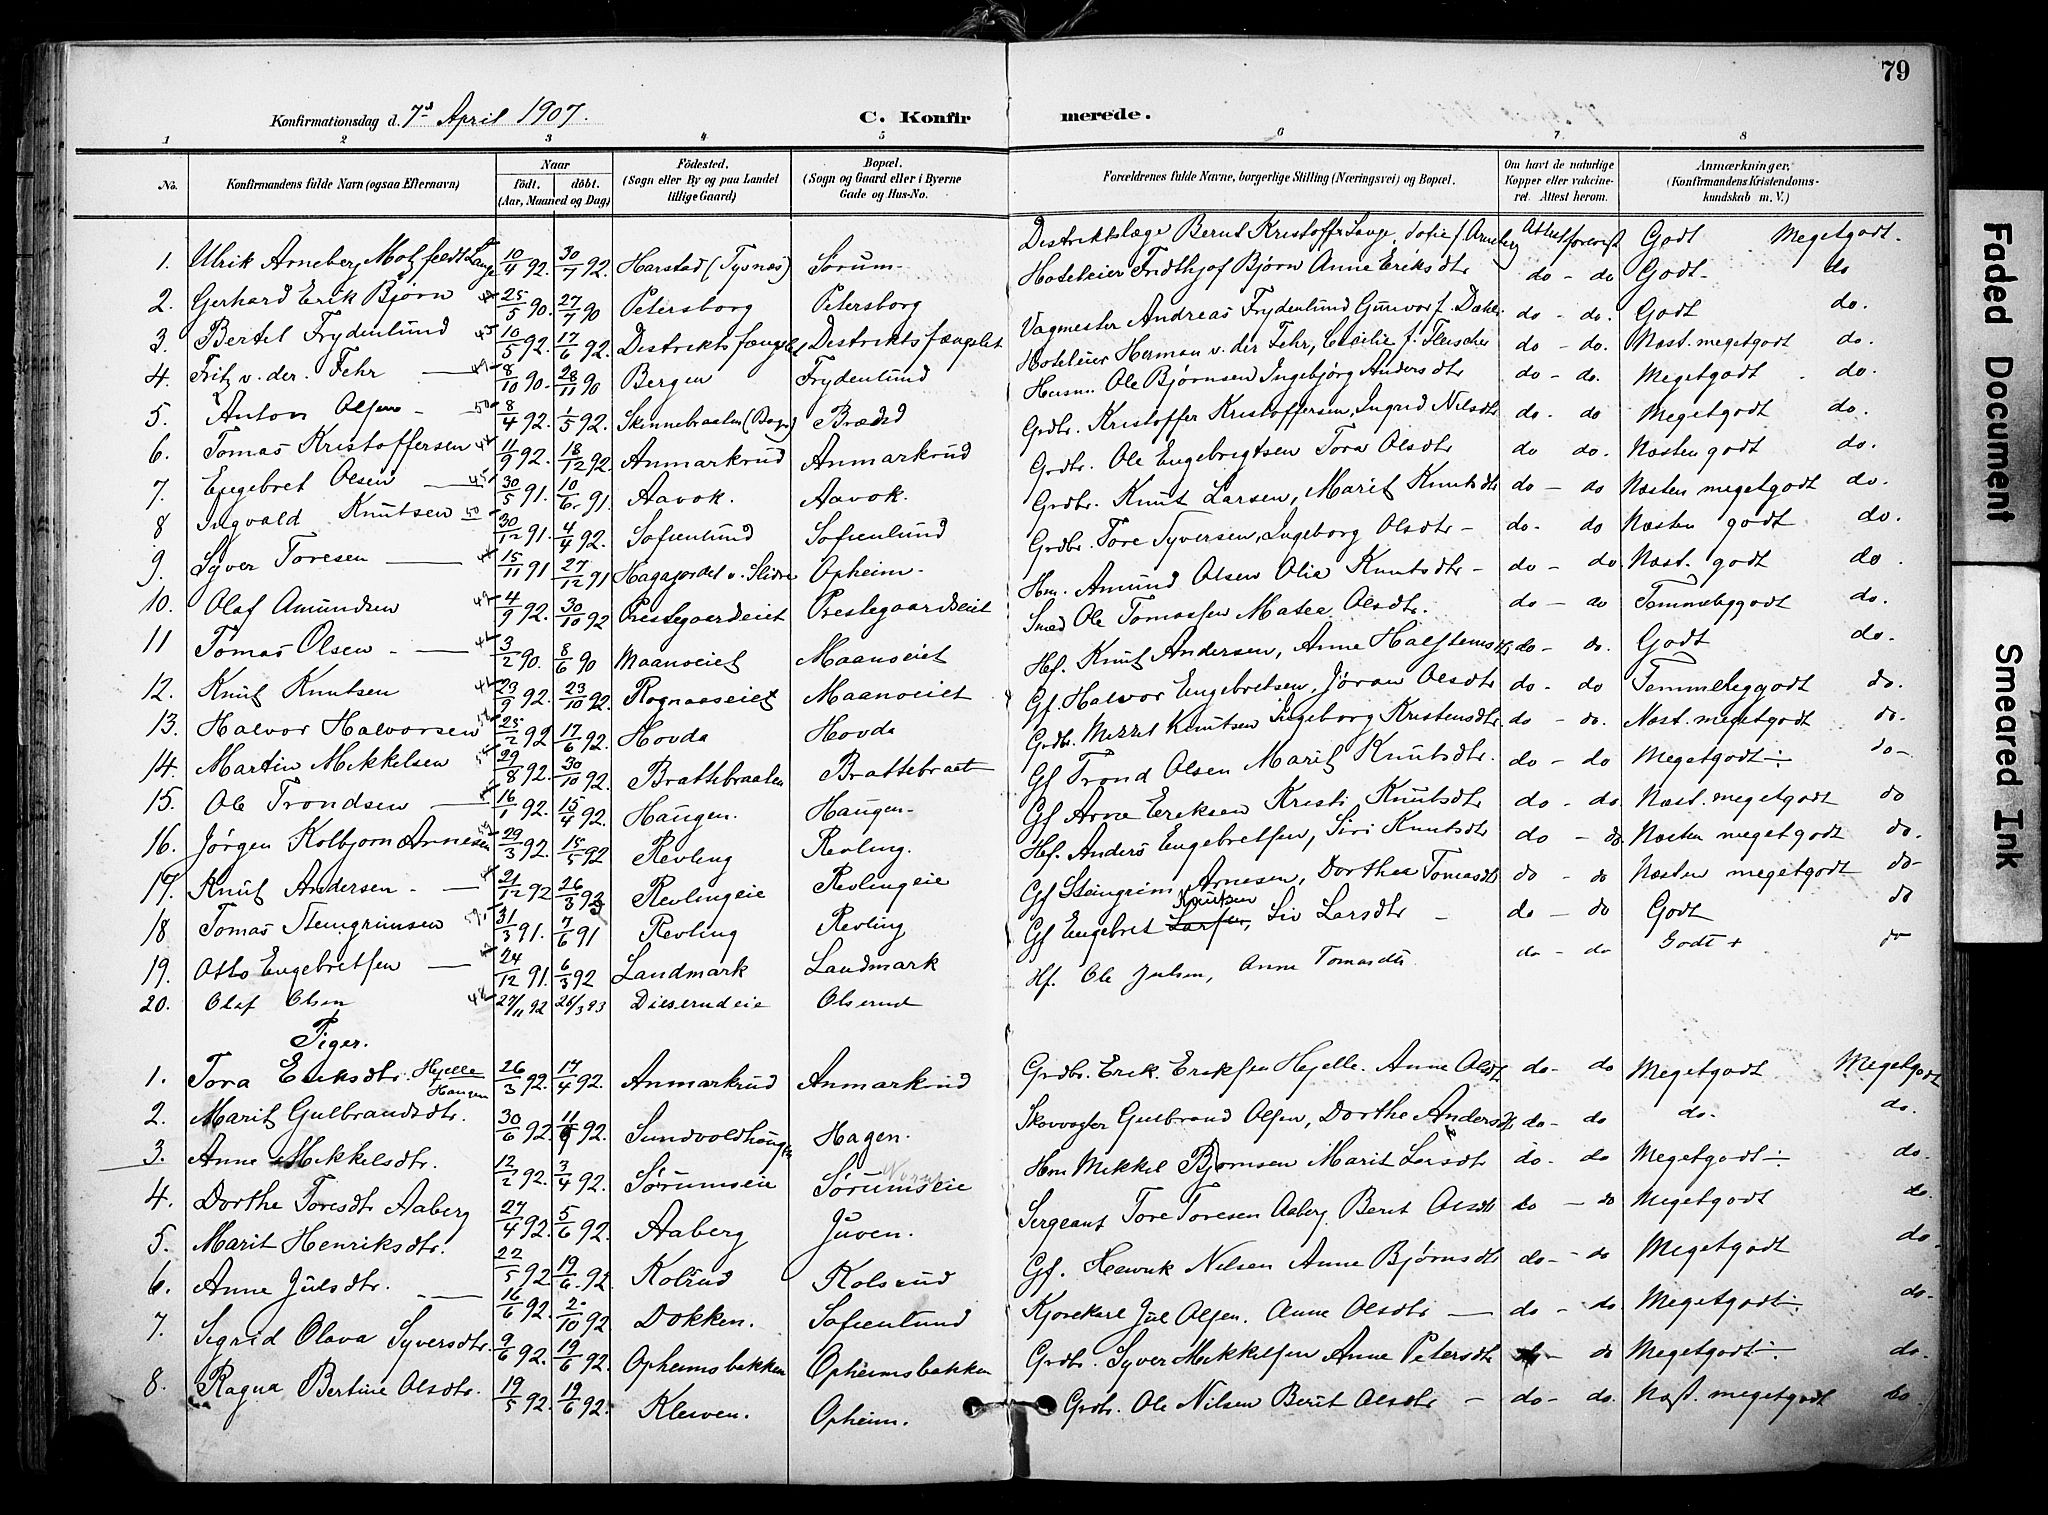 79
Konfirmationsdag d. 7de April 1907.
C. Konfirmerede.
1 2 3 4 5 6 7 8
No. Konfirmandens fulde Navn (ogsaa Efternavn) Naar födt. döbt. (Aar, Maaned og Dag) Födested. (Sogn eller By og paa Landet tillige Gaard) Bopæl. (Sogn og Gaard eller i Byerne Gade og Hus-No. Forældrenes fulde Navne, borgerlige Stilling (Næringsvei) og Bopæl. Om havt de naturlige Kopper eller vaccineret. Attest herom. Anmærkninger, (Konfirmandens Kristendomskundskab m. V.)
1. Ulrik Arneberg Motzfeldt Lange 10/4 92. 30/7 92. Harstad (Tysnæs) Sørum Distriktslæge Bernt Kristoffer Lange, Sofie f. Arneberg Attest forevist Godt Megetgodt.
2. Gerhard Erik Bjørn 25/5 90. 27/7 90 Petersborg Petersborg Hoteleier Fridthjof Bjørn Anne Eriksdtr do - do Godt do
3. Bertel Frydenlund 45 10/5 92. 17/6 92. Distriktsfængslet Distriktsfængslet Vagmester Andreas Frydenlund Gunvor f. Dæhle do - do. Godt do.
4. Fritz v. der. Fehr 8/10 90. 28/11 90 Bergen Frydenlund Hoteleier Herman v. der Fehr, Cecilie f. Fleischer do - do. Næst. megetgodt do.
5. Anton Olsen 50 8/4 92. 1/5 92. Skinnebraaten (Bagn) Brædd Husm. Ole Bjørnsen Ingebjørg Andersdtr do - do. Megetgodt do.
6. Tomas Kristoffersen 11/9 92. 18/12 92. Anmarkrud Anmarkrud Grdbr. Kristoffer Kristoffersen, Ingrid Nilsdtr do - do Megetgodt do.
7. Engebret Olsen 45 30/5 91. 10/6 91. Aavok. Aavok. Grdbr. Ole Engebrigtsen Tora Olsdtr do do. Næsten godt do.
8 Ingvald Knutsen 50 30/12 91. 4/4 92. Sofienlund Sofienlund Grdbr. Knut Larsen, Marit Knutsdtr do - do Næsten megetgodt do.
9. Syver Toresen 15/11 91 27/12 91 Hagajordet v. Slidre Opheim Grdbr. Tore Syversen, Ingeborg Olsdtr - do. do Næsten godt do.
10. Olaf Amundsen 49 4/9 92. 30/10 92 Prestegaardseiet Prestegaardseiet Hm. Amund Olsen Olia Knutsdtr - do - do Næst. godt do.
11 Tomas Olsen 3/2 90. 8/6 90 Maanoeiet Maanoeiet Smed Ole Tomassen Matea Olsdtr. do - do Temmeliggodt do.
12. Knut Knutsen 23/9 92. 23/10 92. Rognaaseiet Maanoeiet Hf. Knut Andersen, Anne Halstensdtr do - do. Godt do.
13. Halvor Halvorsen 25/2 92 17/6 92. Hovda Hovda Gf. Halvor Engebretsen, Jøran Olsdtr do - do Temmeliggodt do.
14. Martin Mikkelsen 29/8 92. 30/10 92. Brattebraaten Brattebraat Grdbr. Mikkel Knutsen Ingeborg Kristensdtr do - do. Næst. megetgodt do.
15. Ole Trondsen 16/1 92. 15/4 92. Haugen. Haugen. Gf Trond Olsen Marit Knutsdtr. do - do Megetgodt ÷ do -
16. Jørgen Kolbjørn Arnesen 29/3 92. 15/5 92 Revling Revling. Gf Arne Eriksen Kristi Knutsdtr do - do Næst. megetgodt do
17. Knut Andersen 21/12 92 26/3 93 Revlingeie Revlingeie Hf. Anders Engebretsen, Siri Knutsdtr do - do Næsten megetgodt do.
18 Tomas Steingrimsen 31/3 91. 7/6 91 Revling Revling Gf Steingrim Arnesen, Dorthea Tomasdtr do - do Næsten megetgodt do -
19. Otto Engebretsen 24/12 91. 6/3 92 Landmark Landmark Gf Engebret Larsen, Knutsen Siv Larsdtr - do - do Godt do
20. Olaf Olsen 48 27/11 92 26/3 93 Olserudeie Olserud Hf. Ole Julsen, Anne Tomasdtr do - do Godt + do
Piger.
1. Tora Eriksdtr. Hjelle Haugen 26/3 92. 17/4 92. Anmarkrud Anmarkrud Grdbr. Erik Eriksen Hjelle. Anne Olsdtr do - do Megetgodt Megetgodt
2. Marit Gulbrandsdtr. 30/6 92. 11/9 92. Sundvoldhaugen Hagen. Skovvogter Gulbrand Olsen, Dorthe Andersdtr do - do do. do.
3. Anne Mikkelsdtr. 12/2 92. 3/4 92. Sørumseie Sørumseie Hm Mikkel Bjørnsen Marit Larsdtr do - do Megetgodt ÷ do.
4. Dorthe Toresdtr Aaberg 27/4 92. 5/6 92. Aaberg Juven. Sergeant Tore Toresen Aaberg. Berit Olsdtr do - do Megetgodt do.
5. Marit Henriksdtr. 22/5 92 19/6 92. Kolsrud Kolsrud Gf. Henrik Nilsen Anne Bjørnsdtr do - do Megetgodt do.
6. Anne Julsdtr. 16/6 92. 2/10 92 Dokken. Sofienlund Kjørekarl Jul Olsen. Anne Olsdtr do - do Megetgodt ÷ do -
7. Sigrid Olava Syversdtr. 9/6 92. 19/6 92. Opheimsbakken Opheimsbakken Grdbr. Syver Mikkelsen Anne Petersdtr do - do Megetgodt ÷ do.
8. Ragna Bertine Olsdtr. 19/5 92. 19/6 92. Kleiven. Opheim. Grdbr. Ole Nilsen Berit Olsdtr - do - do. Næst. megetgodt do
Faded Document
Smeared Ink